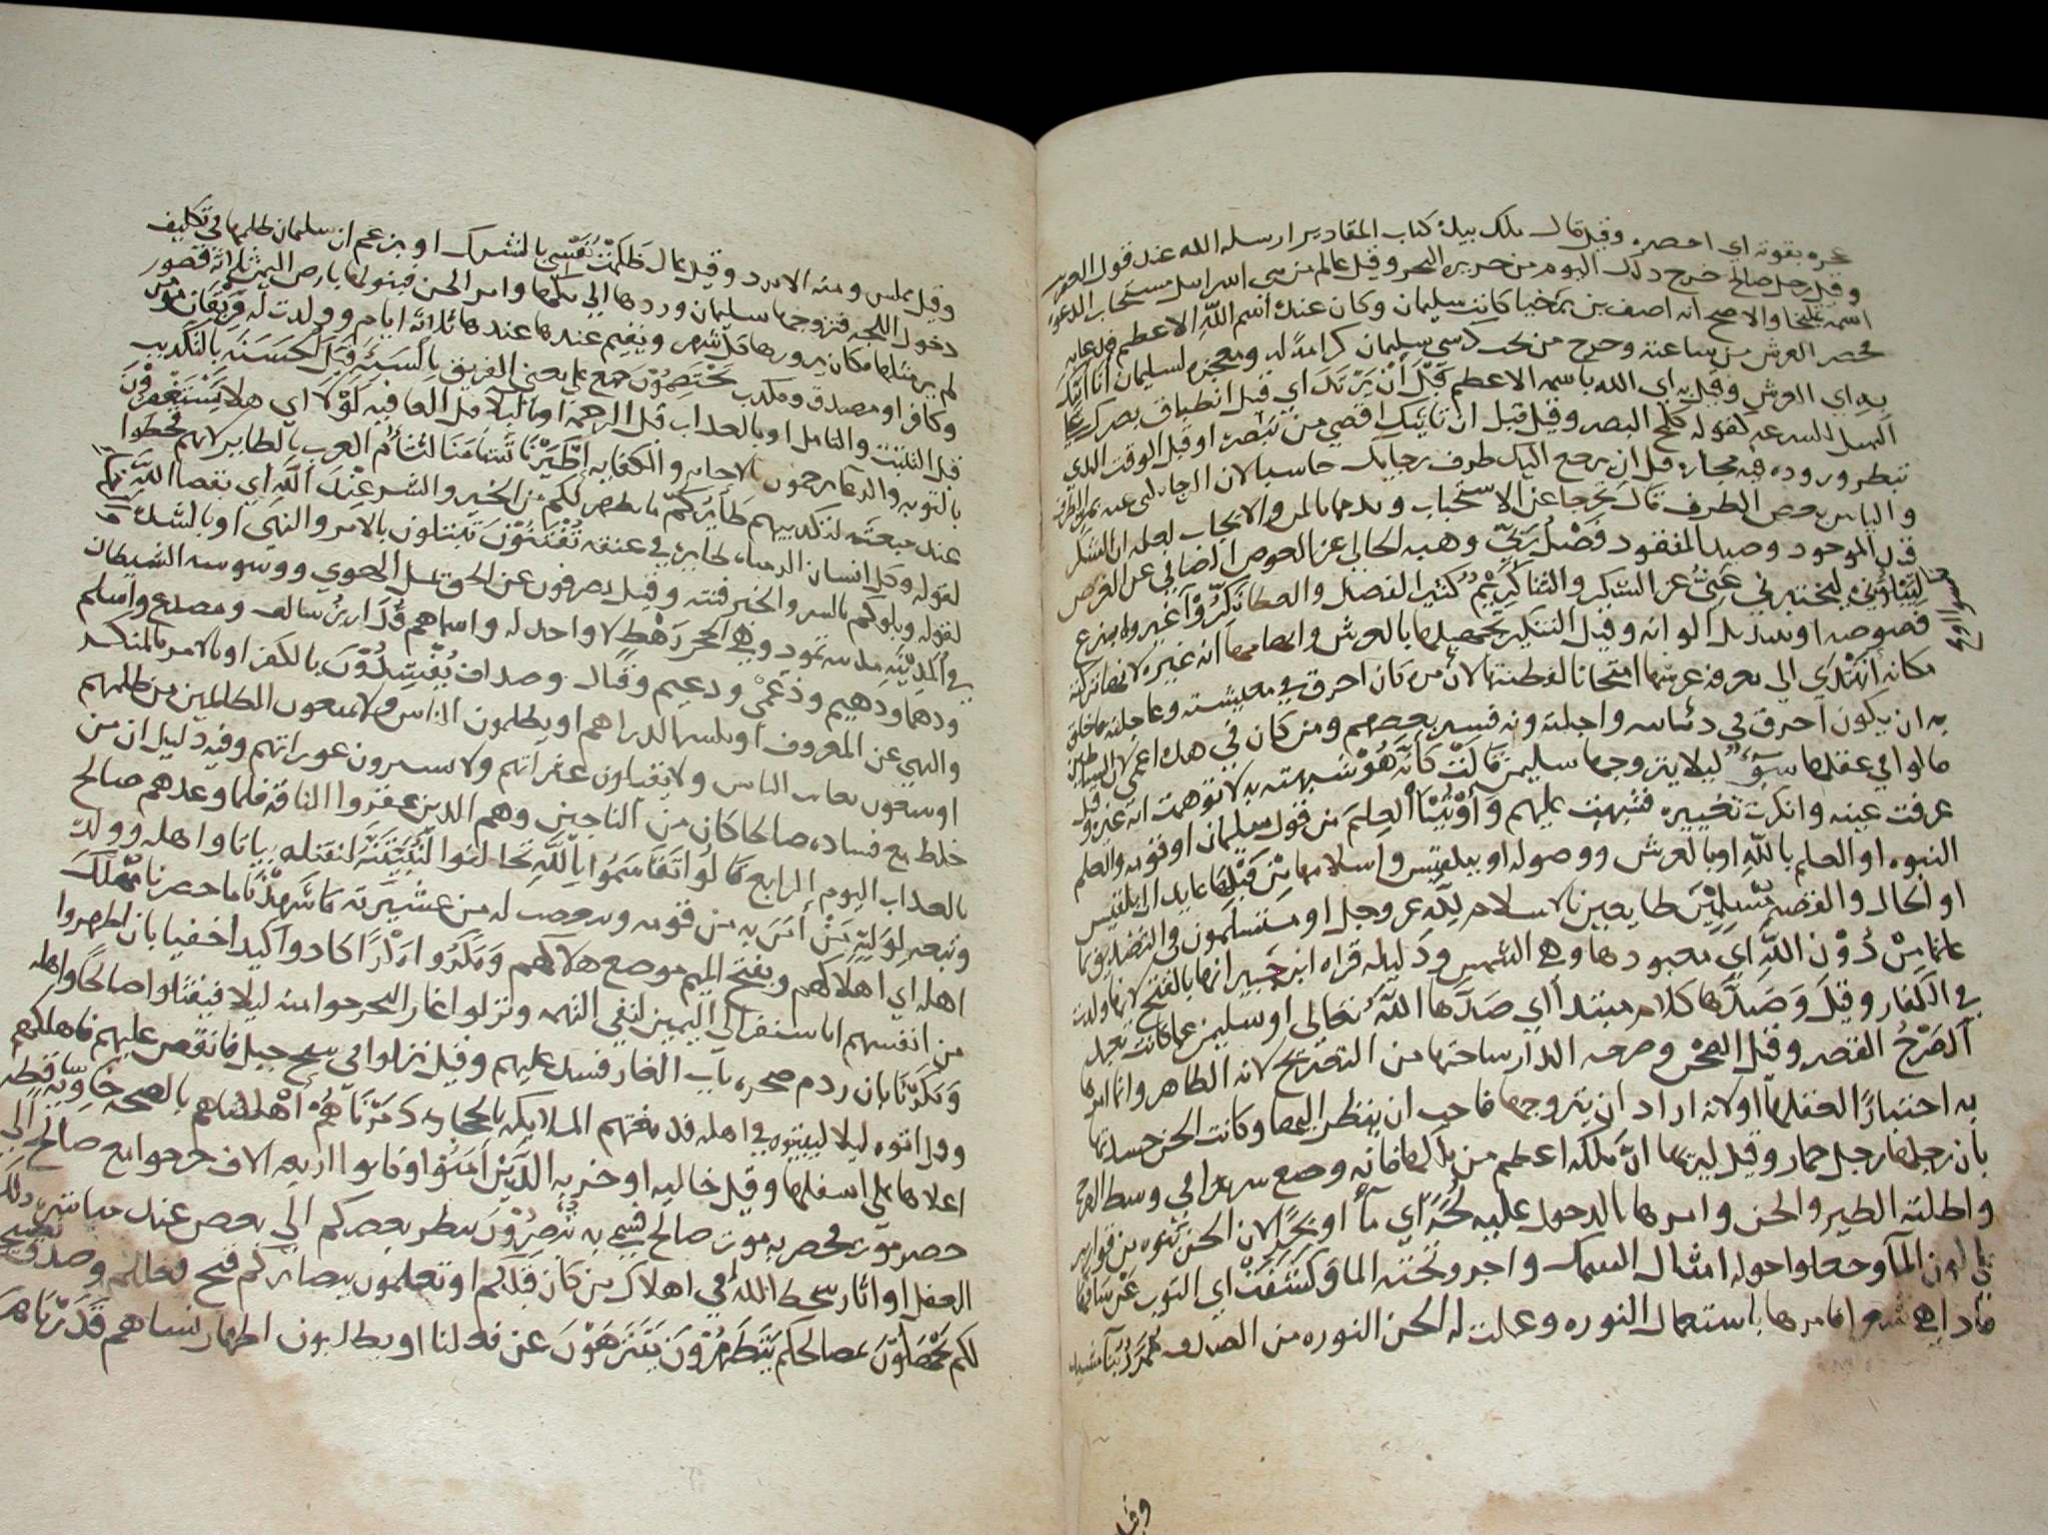 غيره بقوته اي احضره وقيل قال ملك بيده كتاب المقادير ارسله الله عند قول العفريت
وقيل رجل صالح خرج ذلك اليوم من جزيره البحر وقيل عالم من بني اسراييل مستجاب الدعوه
اسمه والاصح انه اصف بن برخيا كاتب سليمان وكان عنده اسم الله الاعظم فدعا به
فحضر العرش من ساعته وخرج من تحت كرسي سليمان كرامة له ومعجزه لسليمان انا اتيك
به اي العرش وقيل به اي الله باسمه الاعظم قبل ان يرتد اي قبل انطباق بصرك على
السرعه كقوله كلمح البصر وقيل قبل ان ياتيك اقصي من تبصره او قبل الوقت الذي
تنتظر وروده فيه قبل ان يرجع اليك طرف رجايك خاسيا لان
والياس بعض الطرف قال تخرجا عن الاستحباب
قيد الموجود وصيد المفقود فضل ربي وهبه لحالي عن العوض الصافي عن الغرض
ليبلوني ليختبرني غني عن الشكر والثنا كريم كثير الفضل والعطا نكروا غيروا بنزع
فصوصه او بتبديل الوانه وقيل التنكير
مكانه اتهتدي الي معرفه عرشها امتحانا لفطنتها لان من كان احرق في معيشته وعاجلته
به ان يكون احرق في ديانته واجلته وبه فسر بعضهم ومن كان في هذه اعمى لان الشياطين
قالوا في عقلها سوء ليلا يتزوجها سليمن قالت كانه هو شبهته به لا توهمت انه غيره وقيل
عرفت عينه وانكرت تغييره فشبهت عليهم واوتينا العلم من قول سليمان او قومه والعلم
النبوه او العلم بالله او بالعرش ووصوله او ببلقيس واسلامها من قبلها عايد الى بلقيس
او الحال والقصه مسلمين طايعين بالاسلام لله عز وجل او مستسلمون
من دون الله اي معبودها وهي الشمس ودليله قراه ابن جبير انها بالفتح لانها ولدت
في الكفار وقيل وصدها كلام مبتدا اي صدها الله تعالى او سليمن عما كانت تعبد
الصرح القصر وقيل الصحن وصرحه الدار ساحتها من التصريح لانه الظاهر وانما امرها
به اختبارا لعقلها او لانه اراد ان يتزوجها فاحب ان ينظر اليها وكانت الجن حسدتها
بان رجلها رجل حمار وقيل ليريها ان ملكه اعظم من ملكها فانه وضع سريرا في وسط الصرح
واظلته الطير والجن وامرها بالدخول عليه لجة اي مآ او بحرا لان الجن بنوه من قوارير
في لون المآ وجعلوا حوله امثال السمك واجرو تحته الما وكشفت اي الثوب عن ساقيها
فاذا هي شعرا فامرها باستعمال النوره وعملت له الجن النوره من الصدف ممرد بنآ مشيد
وقيل
وقيل مملس ومنه الامرد وقيل قال ظلمت نفسي بالشرك او بزعم ان سليمان ظلمها في تكليف
دخول اللجه فتزوجها سليمان وردها الي ملكها وامر الجن فبنو لها بارض اليمن ثلاثة قصور
لم ير مثلها مكان يزورها كل شهر ويقيم عندها ثلاثة ايام وولدت له فريقان مومن
وكافر او مصدق ومكذب يختصمون جمع على معنى الفريق بالسيئه قبل الحسنه بالتكذيب
قبل التثبت والتامل او بالعذاب قبل الرحمه او بالبلا قبل العافيه لولا اي هلا يستغفرون
بالتوبه والدعا ترحمون بالاجابه والكفايه اطيرنا تشامنا لتشاؤم العرب بالطاير لانهم قحطوا
عند مبعثه لتكذيبهم طايركم ما يظهر لكم من الخير والشر عند الله اي بقضا الله تعالى
لقوله وكل انسان الزمناه طايره في عنقه تفتنون تبتلون بالامر والنهي او بالشده
لقوله ونبلوكم بالشر والخير فتنه وقيل يصرفون عن الحق ميل الهوي ووسوسه الشيطان
في المدينه مدينه ثمود وهي الحجر رهط لا واحد له واسماهم قدار بن سالف ومصدع واسلم
ودهما ودهيم وذعمى ودعيم وقتال وصداف يفسدون بالكفر او بالامر بالمنكر
والنهي عن المعروف او بكسر الدراهم او يظلمون الناس ولا يمنعون الظالمين من ظلمهم
او يتبعون معايب الناس ولا يقيلون عثراتهم ولا يسترون عوراتهم وفيه دليل ان من
خلط مع فساده صالحا كان من الناجين وهم الذين عقروا الناقه فلما وعدهم صالح
بالعذاب اليوم الرابع قالوا تقاسموا بالله تحالفوا لنبيتنه لنقتلنه بياتا واهله وولده
وتبعه لوليه من امن به من قومه وتعصب له من عشيرته ما شهدنا ما حضرنا مهلك
اهله اي اهلاكهم وبفتح الميم موضع هلاكهم ومكروا مكرا كادوا كيدا خفيا بان اظهروا
من انفسهم انا سفر الي اليمن لنفي التهمه ونزلوا غارا ليخرجوا منه ليلا فيقتلوا صالحا واهله
ومكرنا بان ردم صخره باب الغار فسد عليهم وقيل نزلوا في سفح جبل فانقض عليهم فاهلكهم
وقيل اتوه ليلا ليبيتوه في اهله فدمغتهم الملايكه بالحجاره دمرناهم اهلكناهم بالصيحه خاويه ساقطه
اعلاها على اسفلها وقيل خاليه او خربه الذين امنوا وكانوا اربعه الاف خرجوا مع صالح الي
حضرموت فحضر به موت صالح فسمي به تبصرون ينظر بعضكم الي بعض عند مباشره ذلك
العمل او اثار سخط الله في اهلاك من كان قبلكم او تعلمون ببصايركم قبح فعالكم وصدق
لكم تجهلون بمصالحكم يتطهرون يتنزهون عن فعلنا او يطلبون اطهار نساهم قدرناها